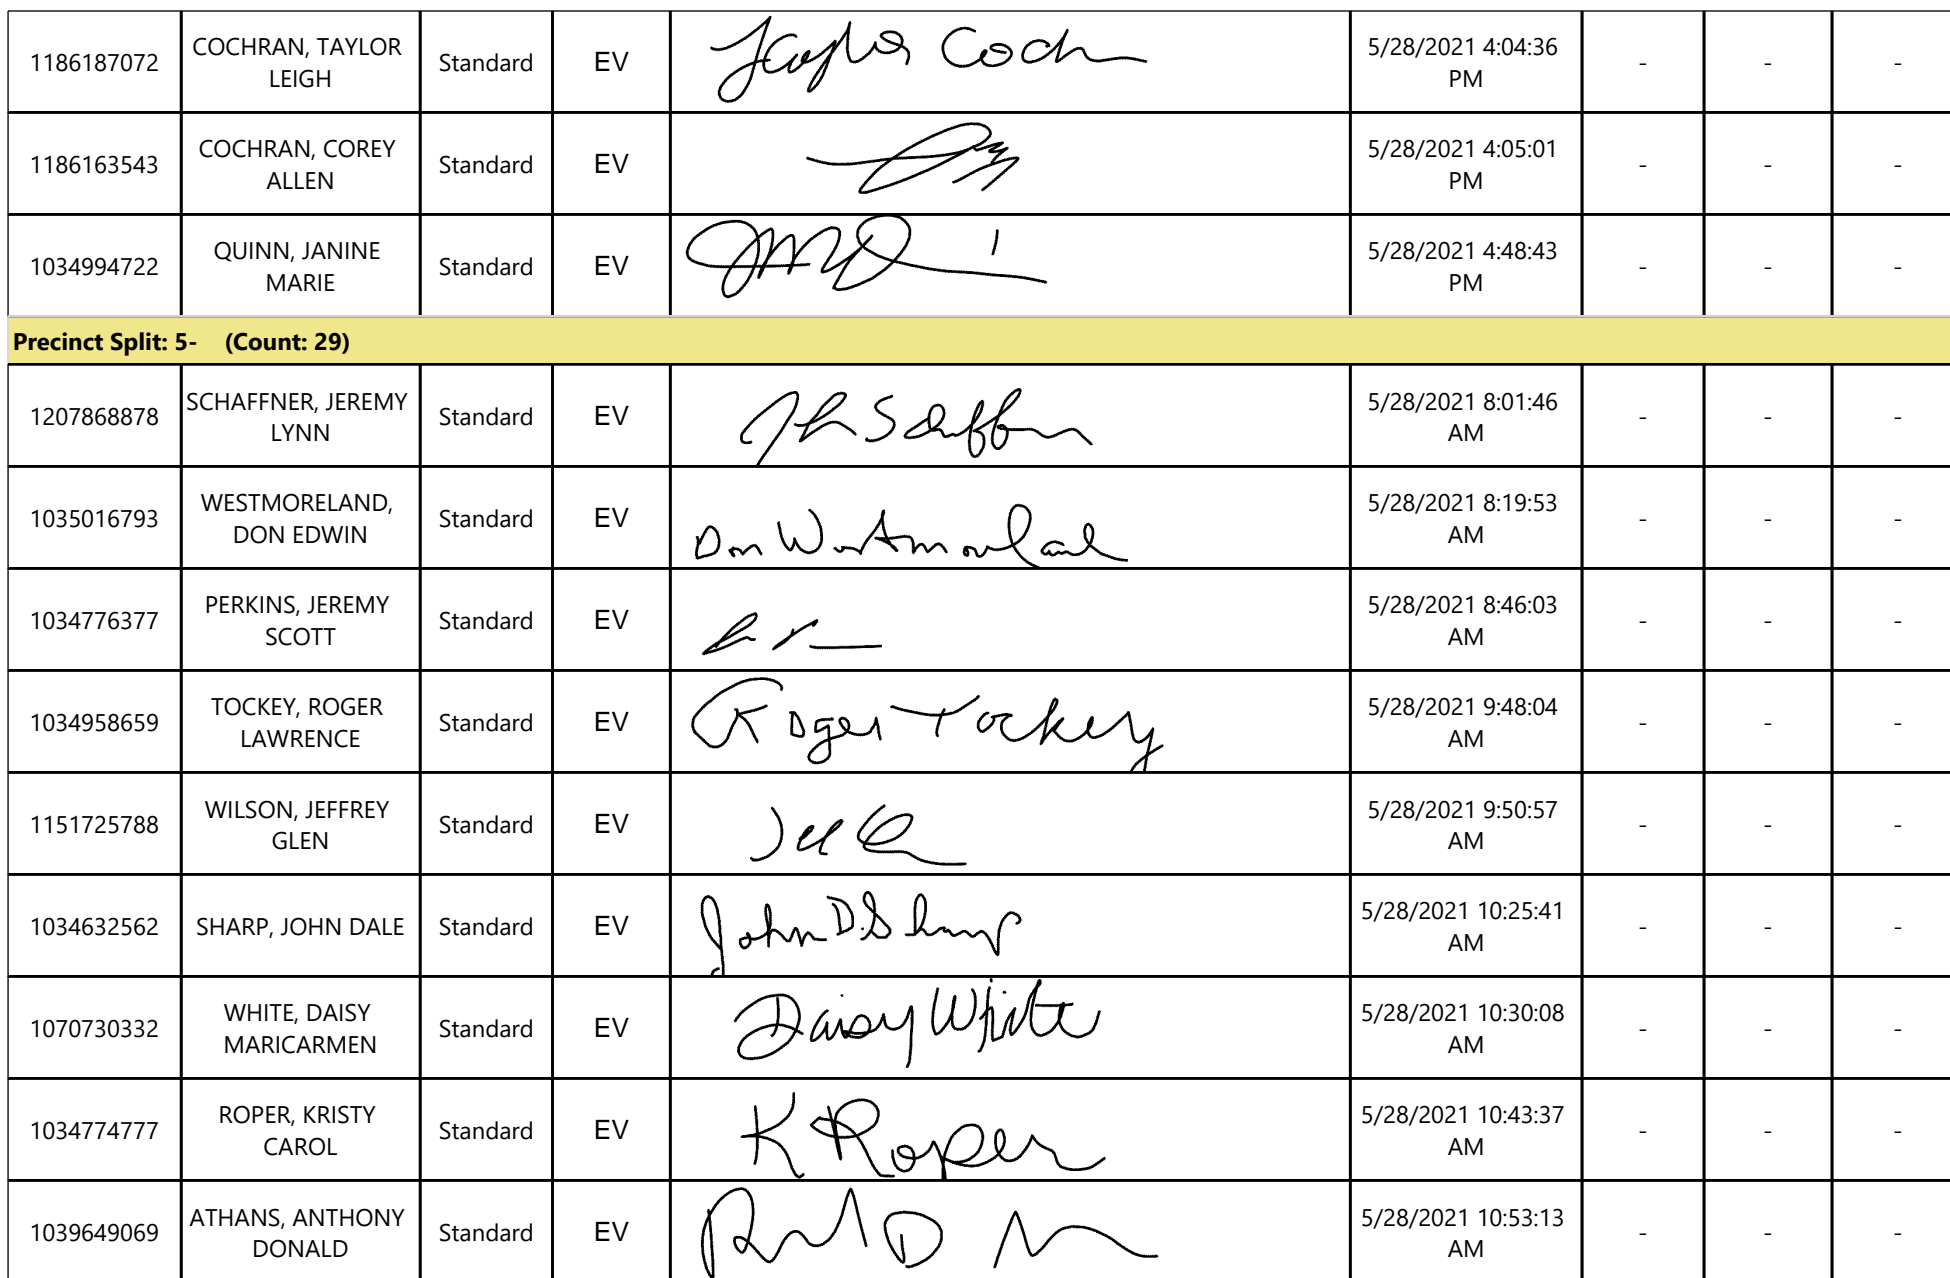 1186187072 COCHRAN, TAYLOR LEIGH Standard EV Taylor Coch 5/28/2021 4:04:36 PM - - -
1186163543 COCHRAN, COREY ALLEN Standard EV 5/28/2021 4:05:01 PM - - -
1034994722 QUINN, JANINE MARIE Standard EV 5/28/2021 4:48:43 PM - - -
Precinct Split: 5- (Count: 29)
1207868878 SCHAFFNER, JEREMY LYNN Standard EV 5/28/2021 8:01:46 AM - - -
1035016793 WESTMORELAND, DON EDWIN Standard EV Don Westmoreland 5/28/2021 8:19:53 AM - - -
1034776377 PERKINS, JEREMY SCOTT Standard EV 5/28/2021 8:46:03 AM - - -
1034958659 TOCKEY, ROGER LAWRENCE Standard EV Roger Tockey 5/28/2021 9:48:04 AM - - -
1151725788 WILSON, JEFFREY GLEN Standard EV 5/28/2021 9:50:57 AM - - -
1034632562 SHARP, JOHN DALE Standard EV John D. Sharp 5/28/2021 10:25:41 AM - - -
1070730332 WHITE, DAISY MARICARMEN Standard EV Daisy White 5/28/2021 10:30:08 AM - - -
1034774777 ROPER, KRISTY CAROL Standard EV K Roper 5/28/2021 10:43:37 AM - - -
1039649069 ATHANS, ANTHONY DONALD Standard EV 5/28/2021 10:53:13 AM - - -